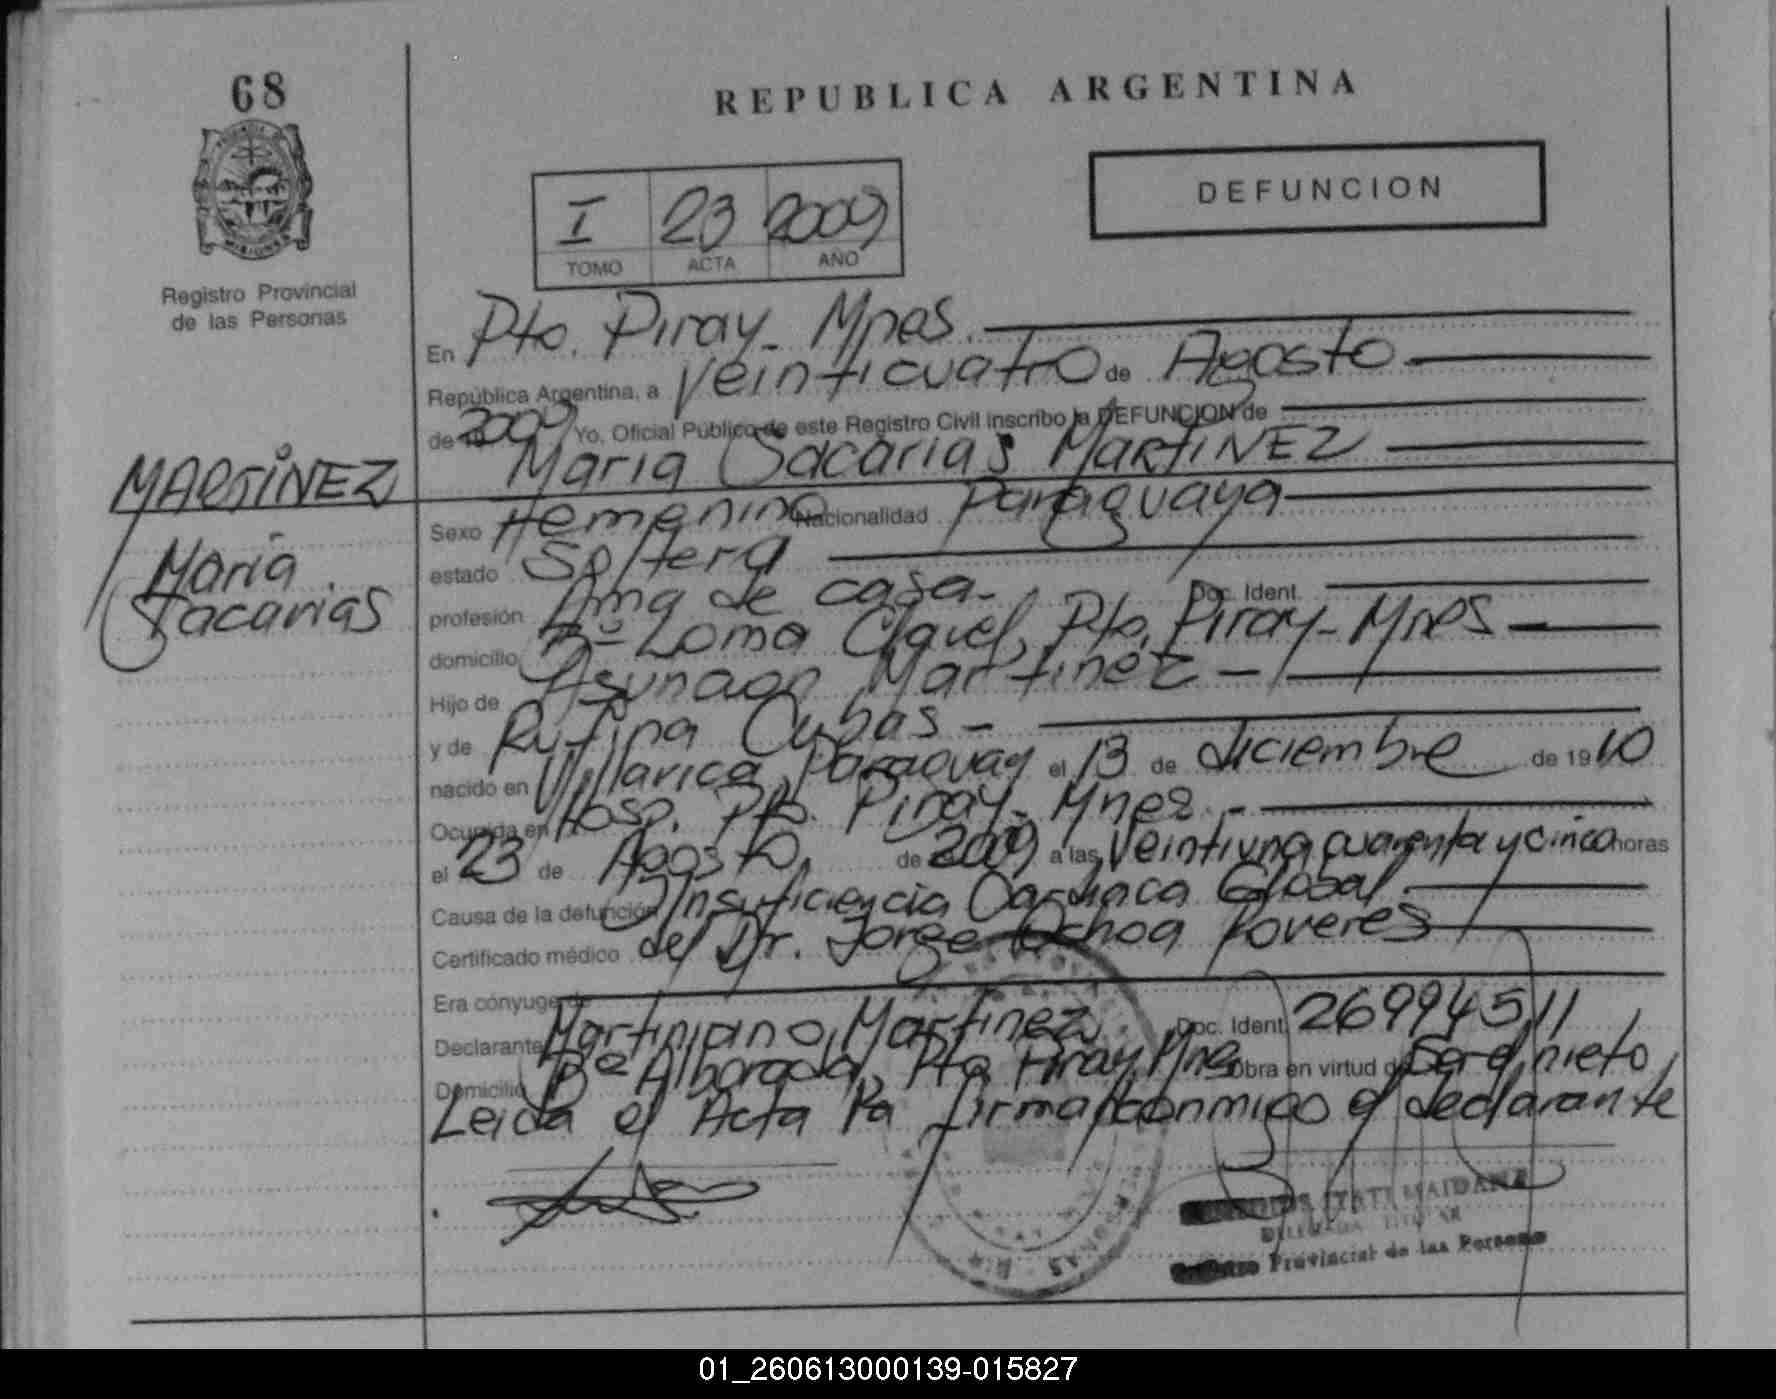 68
REPUBLICA ARGENTINA
DEFUNCION
I 23 2009
TOMO ACTA AÑO
Registro Provincial
de las Personas
MARTINEZ
Maria
Sacarias
En Pto. Piray - Mnes.
República Argentina, a veinticuatro de Agosto
de 2009 Yo, Oficial Público de este Registro Civil inscribo la DEFUNCION de
Maria Sacarias MARTINEZ
Sexo Femenino Nacionalidad Paraguaya
estado Soltera
profesión Ama de casa - Doc. Ident.
domicilio Bº Loma Clavel, Pto. Piray - Mnes
Hijo de Asuncion Martinez -
y de Rufina Cubas -
nacido en Villarica, Paraguay el 13 de diciembre de 1910
Ocurrida en Hosp. Pto. Piray - Mnes. -
el 23 de Agosto, de 2009 a las veintiuna cuarenta y cinco horas
Causa de la defunción Insuficiencia Cardiaca Global
Certificado médico del Dr. Jorge Ochoa Poveres
Era cónyuge de
Declarante Martiniano Martinez Doc. Ident. 26994511
Domicilio Bº Alborada, Pto Piray, Mnes Obra en virtud de Ser el nieto
Leida el Acta la firma conmigo el declarante
ITATI MAIDANA
Provincial de las Personas
01_260613000139-015827